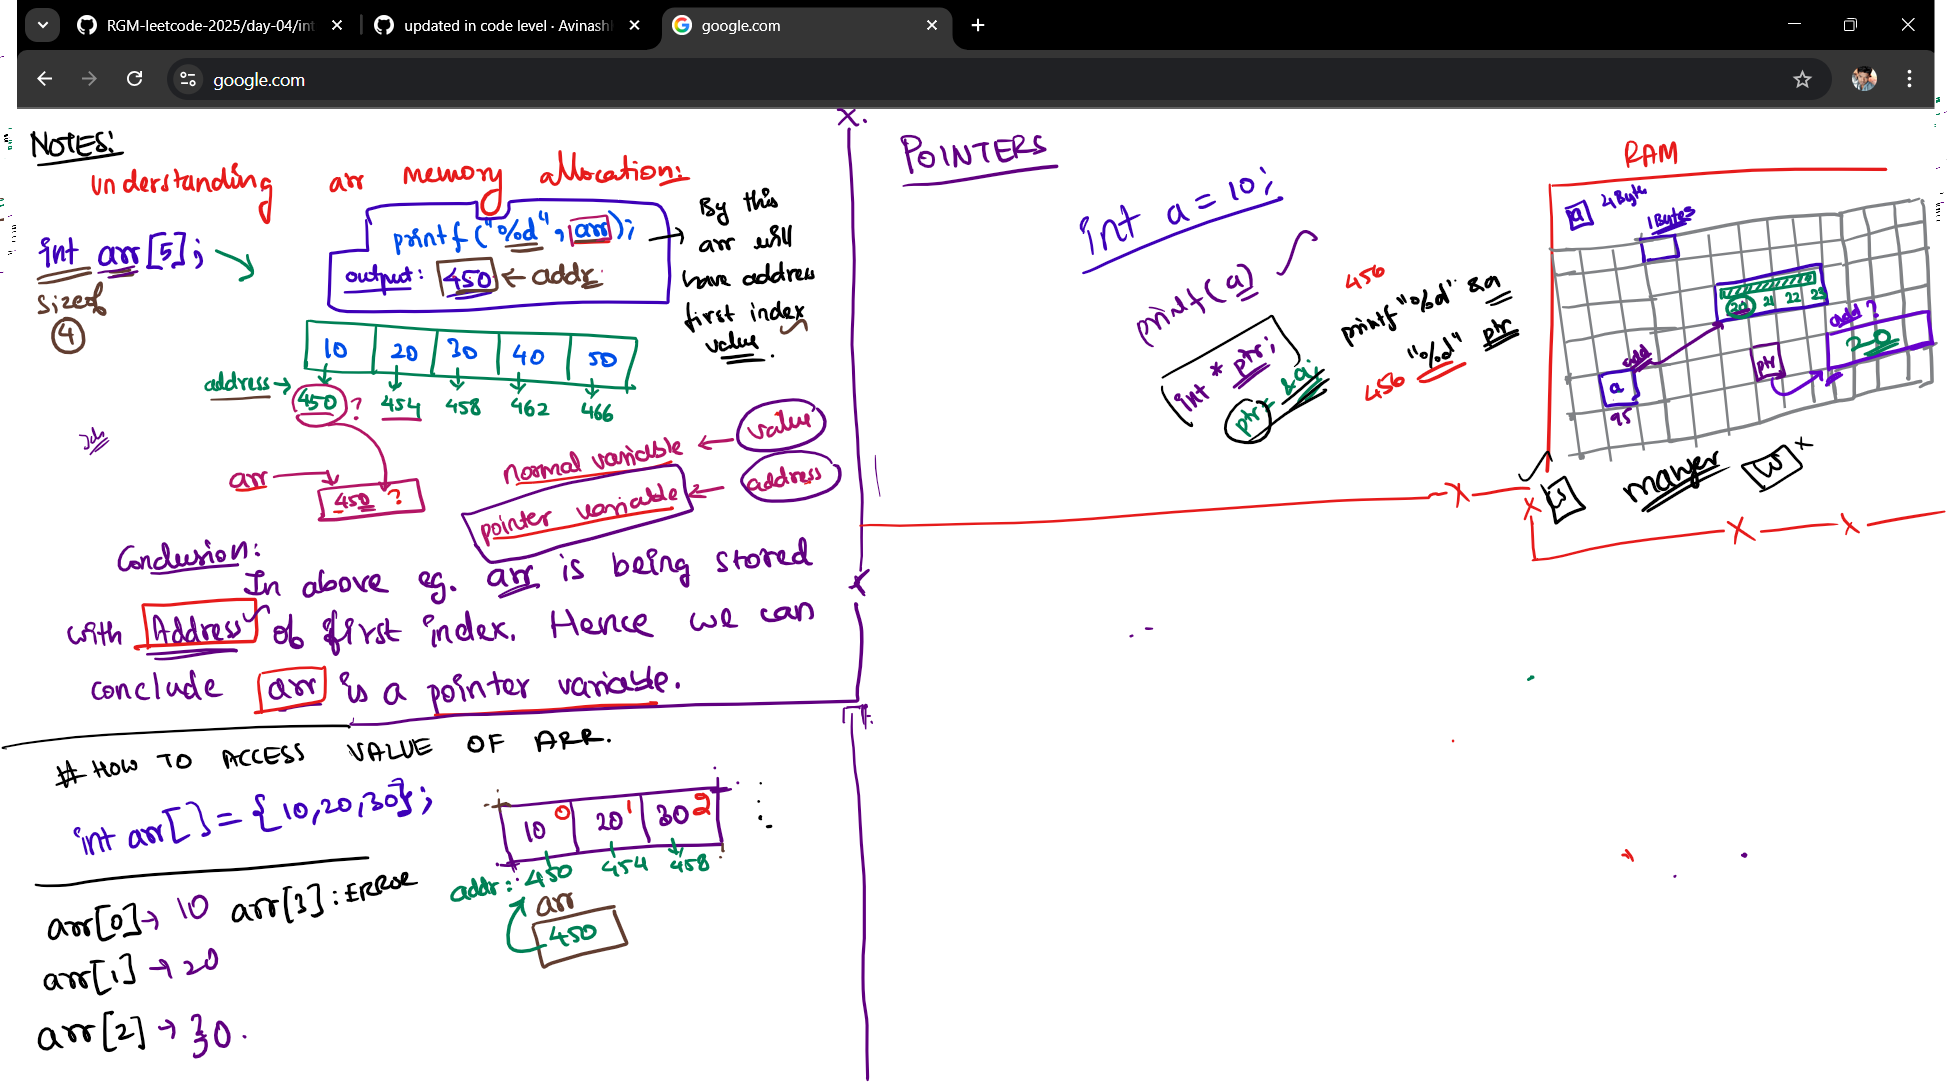 RGM-leetcode-2025/day-04/int
updated in code level · Avinash
google.com
google.com
NOTES:
understanding arr memory allocation:
int arr[5];
sizeof
4
printf("%d", arr);
output: 450 ← addr
By this
arr will
have address
first index
value.
10 20 30 40 50
address →
450 ? 454 458 462 466
arr
450 ?
normal variable ← value
pointer variable ← address
Conclusion:
In above eg. arr is being stored
with Address of first index. Hence we can
conclude arr is a pointer variable.
# HOW TO ACCESS VALUE OF ARR.
int arr[] = {10,20,30};
10 0 20 1 30 2
addr: 450 454 458
arr
450
arr[0] → 10 arr[3] : ERROR
arr[1] → 20
arr[2] → 30.
POINTERS
int a = 10;
printf(a)
int * ptr;
ptr = &a;
456
printf "%d" &a
"%d" ptr
456
RAM
a 4Byte
1Bytes
20 21 22 23
add ?
20
add
a
95
ptr
manger